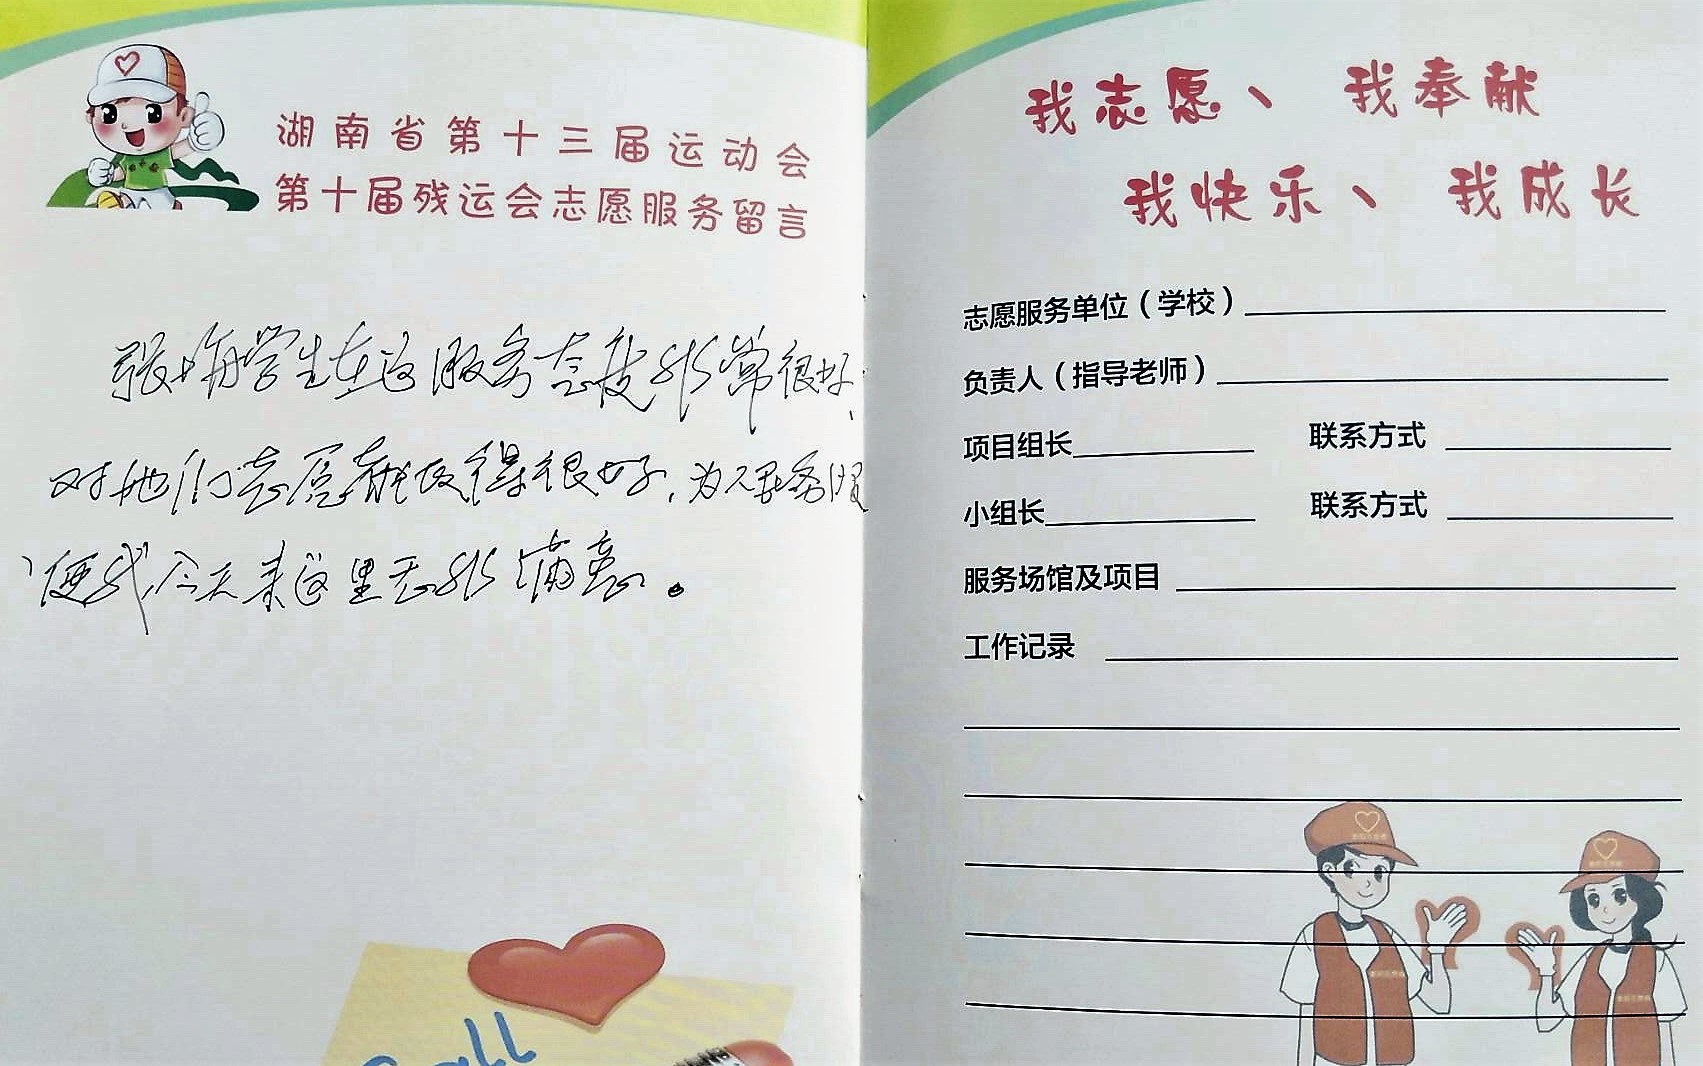 湖南省第十三届运动会
第十届残运会志愿服务留言
学生在这服务态度非常很好
对他们志愿都做得很好，为人民务服
使我今天来这里无非满意。
Call
我志愿、我奉献
我快乐、我成长
志愿服务单位（学校）
负责人（指导老师）
项目组长 联系方式
小组长 联系方式
服务场馆及项目
工作记录